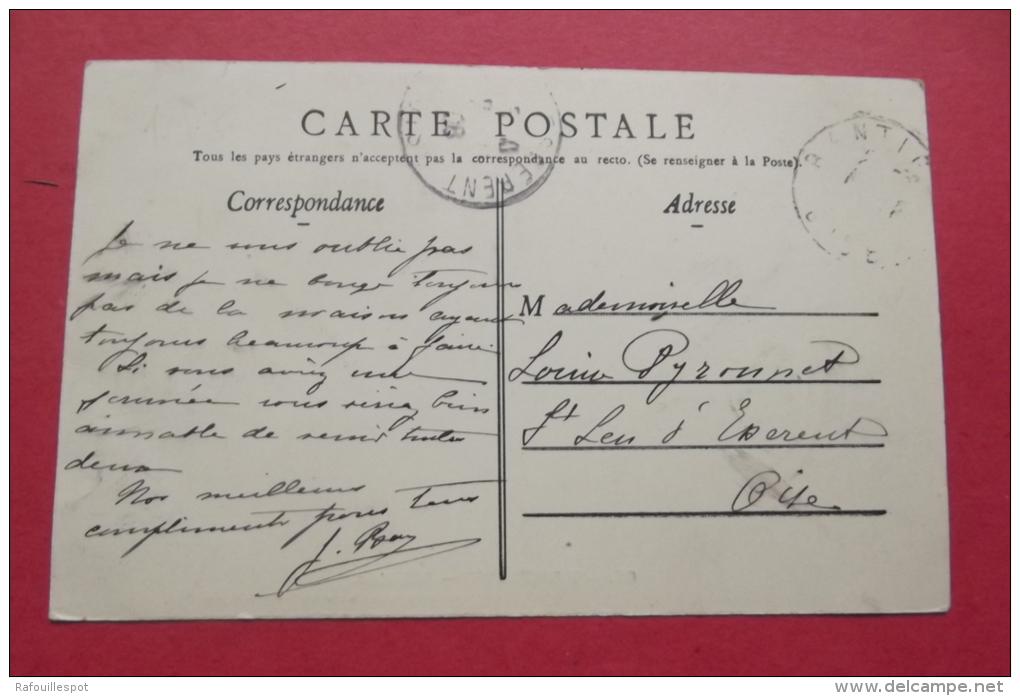 CARTE POSTALE
Tous les pays étrangers n'acceptent pas la correspondance au recto. (Se renseigner à la Poste).
Correspondance
Je ne vous oublie pas
mais je ne bouge toujours
pas de la maison ayant
toujours beaucoup à faire.
Si vous aviez une
journée vous seriez bien
aimable de venir toutes
deux
Nos meilleurs
compliments pour tous
J.
Adresse
Mademoiselle
Pyronnet
St Leu d'Esserent
Oise
ESSERENT
OISE
Rafouillespot
www.delcampe.net